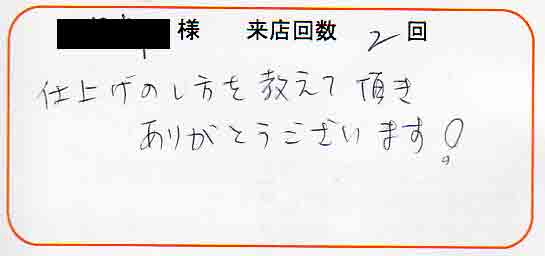 様 来店回数 2 回
仕上げのし方を教えて頂き
ありがとうございます!